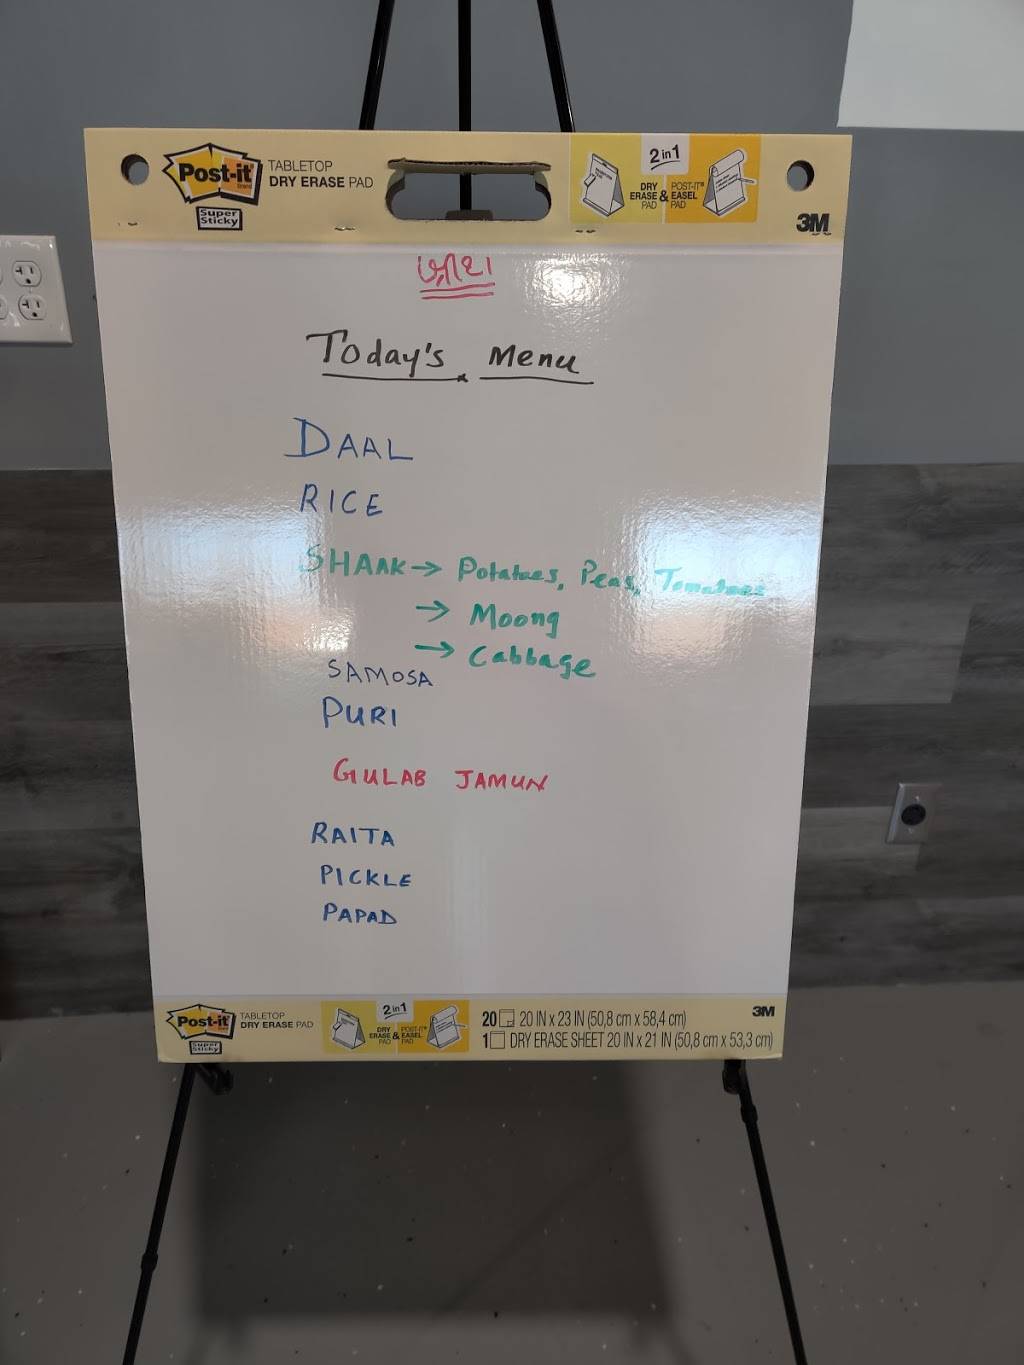 Post-it Brand
Super Sticky
TABLETOP
DRY ERASE PAD
2 in 1
DRY ERASE PAD & POST-IT® EASEL PAD
3M
Today's Menu
DAAL
RICE
SHAAK → Potatoes, Peas, Tomatoes
→ Moong
→ Cabbage
SAMOSA
PURI
GULAB JAMUN
RAITA
PICKLE
PAPAD
Post-it
Super Sticky
TABLETOP
DRY ERASE PAD
2 in 1
DRY ERASE PAD & POST-IT® EASEL PAD
20 20 IN x 23 IN (50,8 cm x 58,4 cm)
1 DRY ERASE SHEET 20 IN x 21 IN (50,8 cm x 53,3 cm)
3M